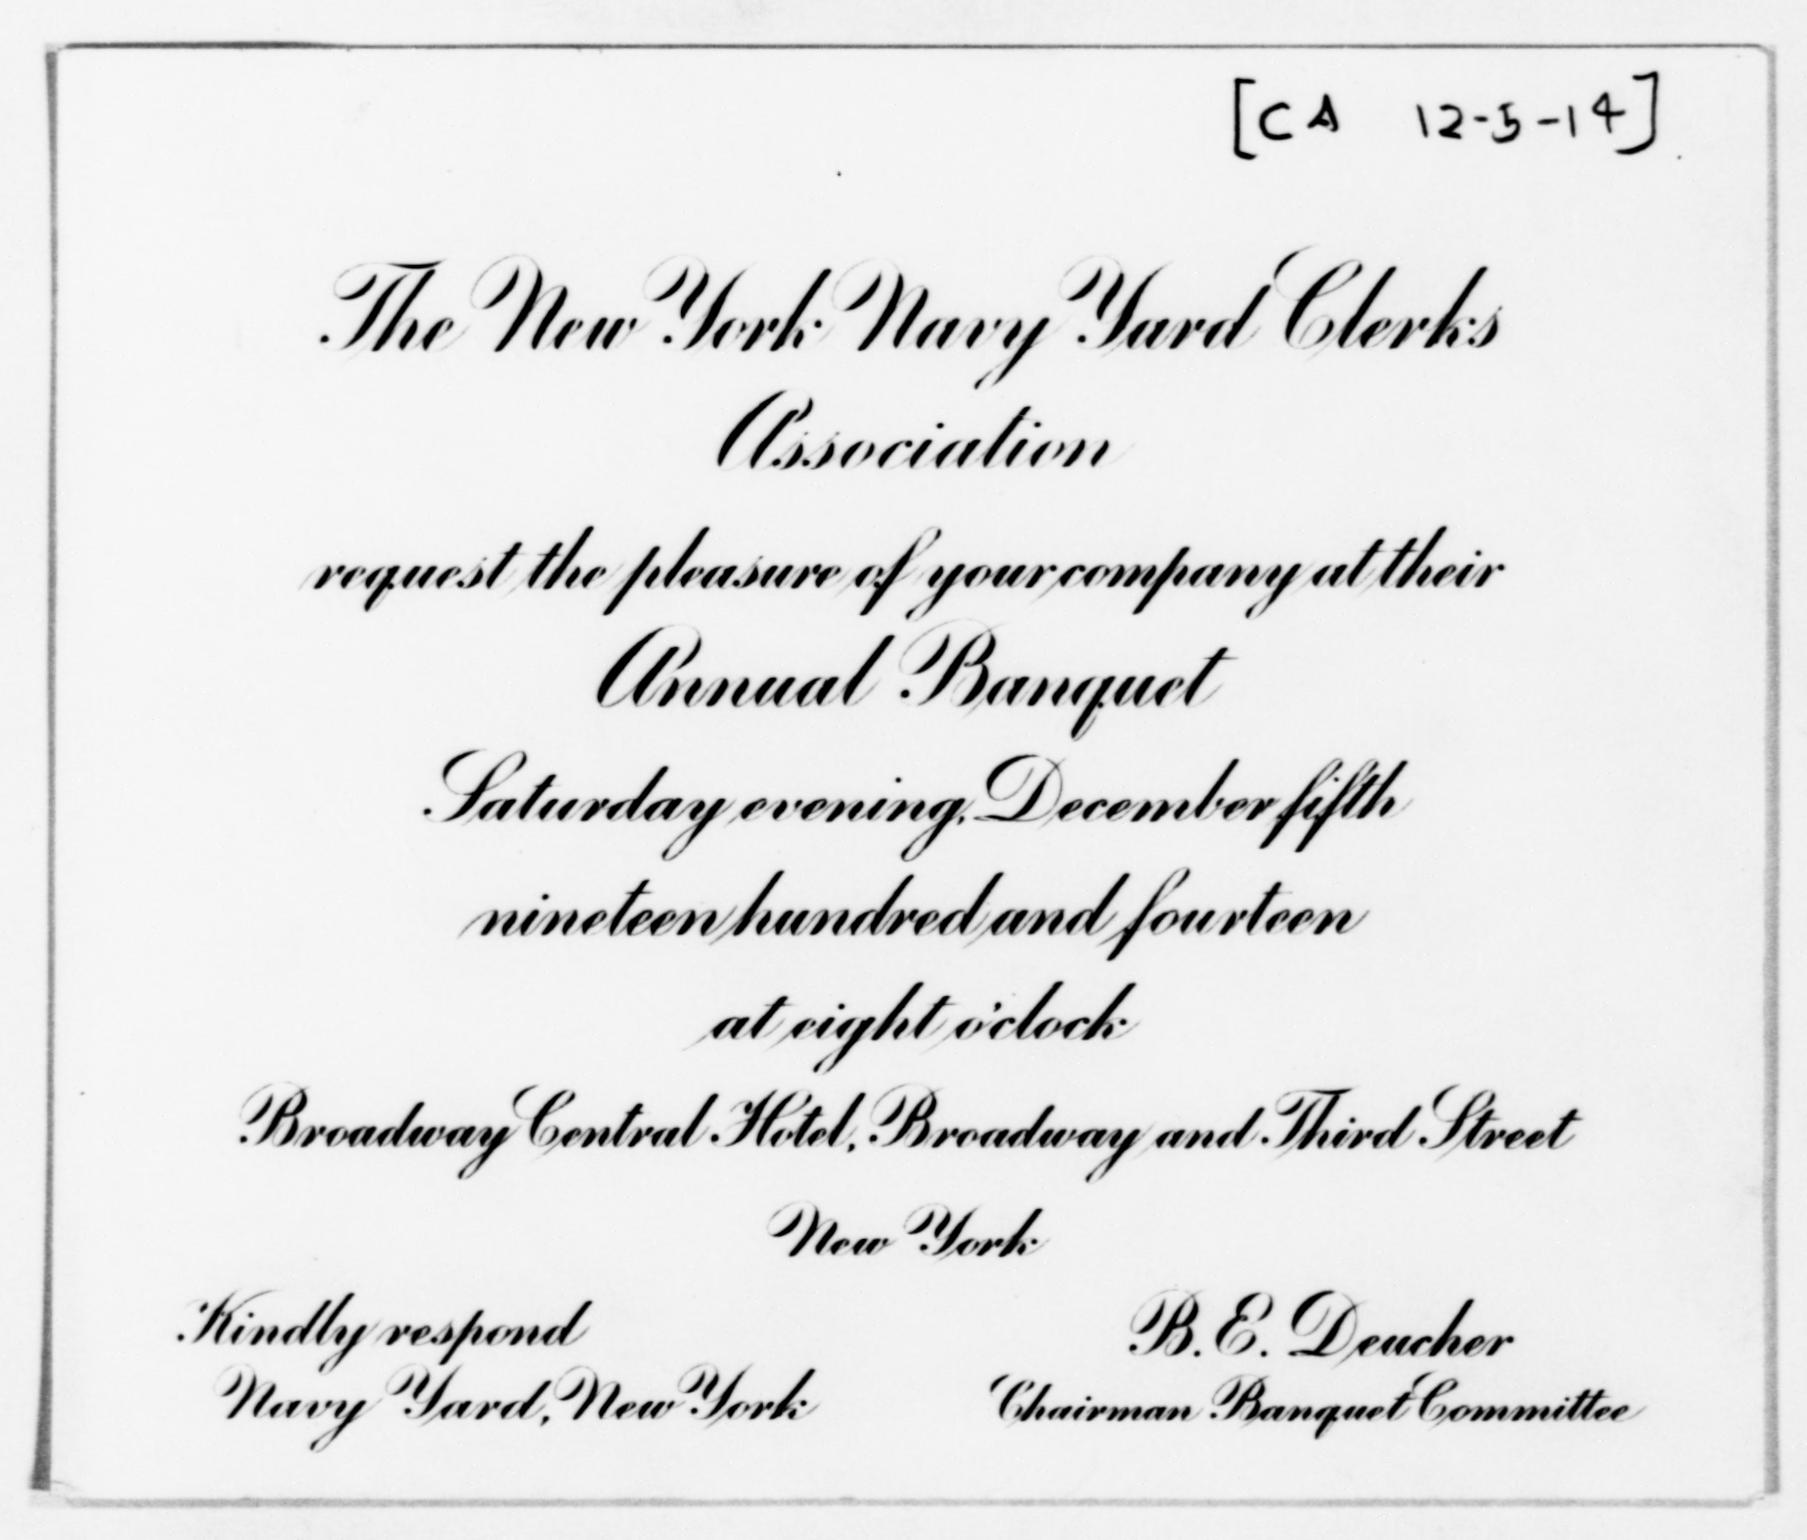 [CA 12-5-14]
The New York Navy Yard Clerks
Association
request the pleasure of your company at their
Annual Banquet
Saturday evening, December fifth
nineteen hundred and fourteen
at eight o'clock
Broadway Central Hotel, Broadway and Third Street
New York
Kindly respond
Navy Yard, New York
B. E. Deucher
Chairman Banquet Committee